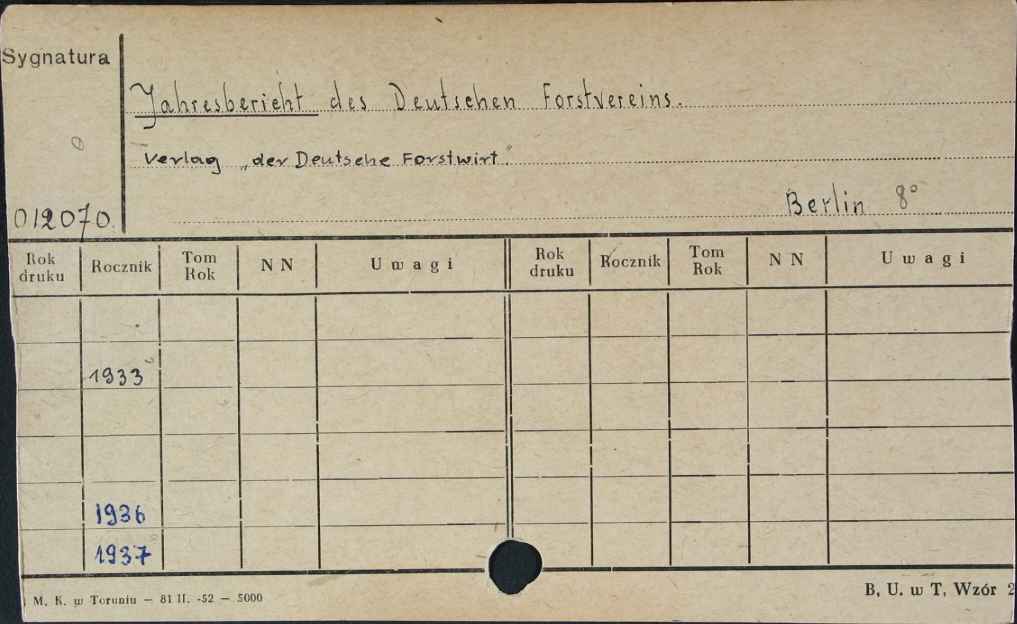 Sygnatura
Jahresbericht des Deutschen Forstvereins.
Verlag „der Deutsche Forstwirt".
012070
Berlin 8°
Rok druku Rocznik Tom Rok N N Uwagi Rok druku Rocznik Tom Rok N N Uwagi
1933
1936
1937
M. K. w Toruniu — 81 II. -52 — 5000
B. U. w T. Wzór 2